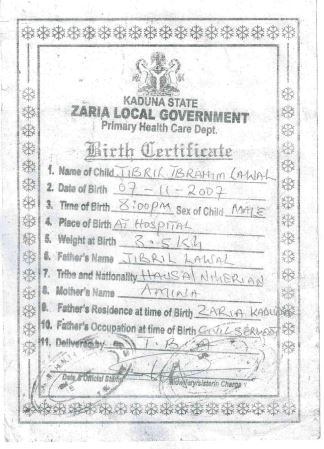 KADUNA STATE
ZARIA LOCAL GOVERNMENT
Primary Health Care Dept.
Birth Certificate
1. Name of Child JIBRIL IBRAHIM LAWAL
2. Date of Birth 07-11-2007
3. Time of Birth 8:00PM Sex of Child MALE
4. Place of Birth AT HOSPITAL
5. Weight at Birth 3.5KG
6. Father's Name JIBRIL LAWAL
7. Tribe and Nationality HAUSA/NIGERIAN
8. Mother's Name AMINA
9. Father's Residence at time of Birth ZARIA KADUNA
10. Father's Occupation at time of Birth CIVIL SERVANT
11. Delivered by T.B.A
Date & Official Stamp
Midwifary/sister in Charge